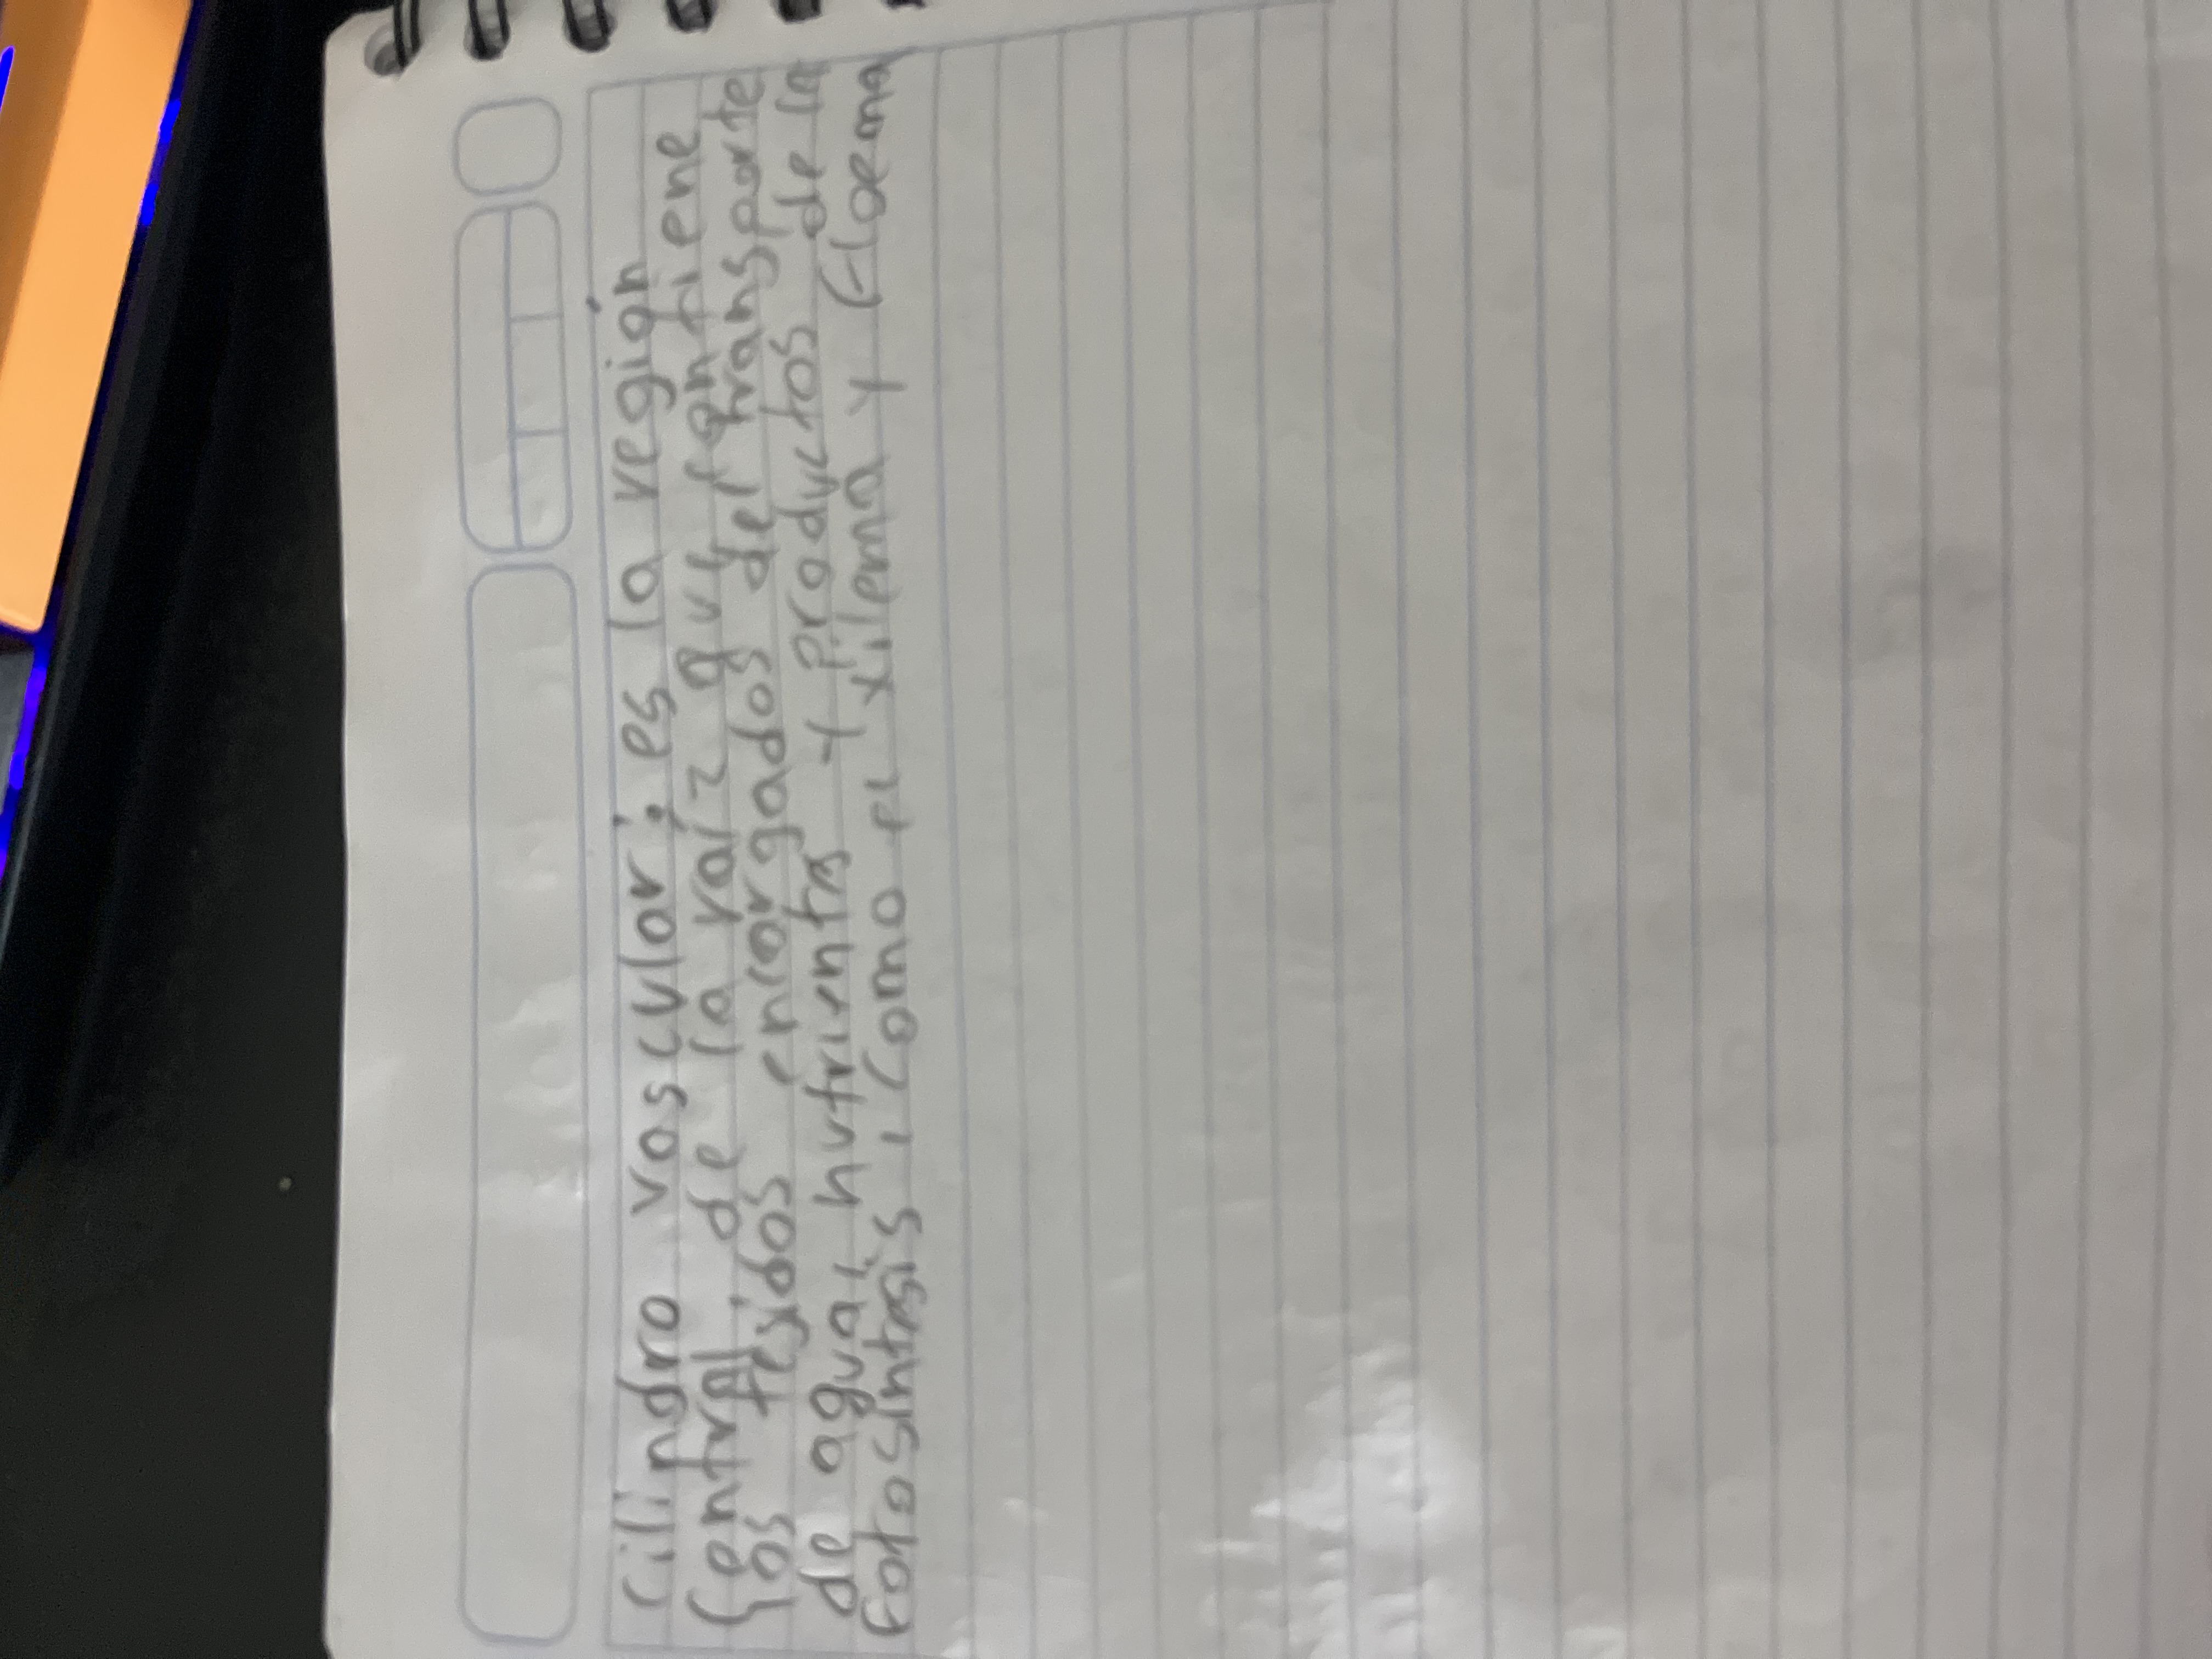 Cilindro vascular: es la región
Central de la raíz que contiene
los tejidos encargados del transporte
de agua, nutrients y productos de la
Fotosíntesis, como el xilema y floema